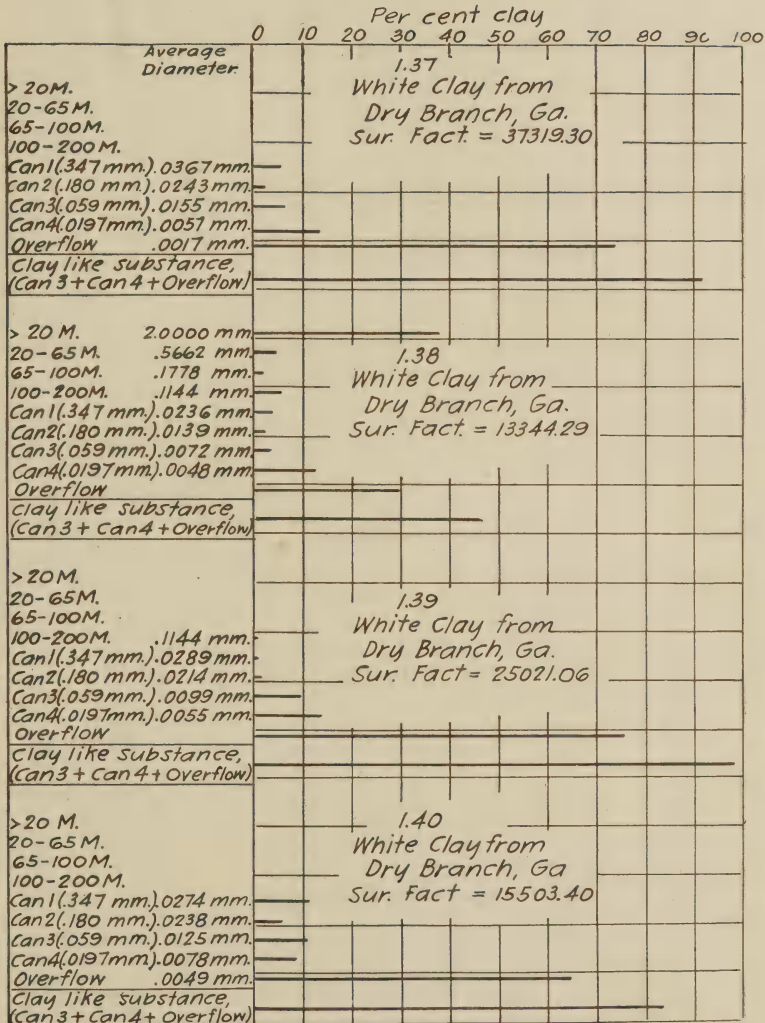 Per cent clay
0 10 20 30 40 50 60 70 80 90 100
Average
Diameter
> 20M.
20-65M.
65-100M.
100-200M.
Can1(.347 mm.).0367mm.
Can2(.180 mm.).0243mm.
Can3(.059 mm.).0155 mm.
Can4(.0197mm.).0057 mm.
Overflow .0017 mm.
Clay like substance,
(Can 3 + Can 4 + Overflow)
1.37
White Clay from
Dry Branch, Ga.
Sur. Fact. = 37319.30
> 20 M. 2.0000 mm.
20-65M. .5662 mm.
65-100M. .1778 mm.
100-200M. .1144 mm.
Can1(.347 mm.).0236 mm.
Can2(.180 mm.).0139 mm.
Can3(.059 mm.).0072 mm.
Can4(.0197mm.).0048 mm.
Overflow
Clay like substance,
(Can 3 + Can 4 + Overflow)
1.38
White Clay from
Dry Branch, Ga.
Sur. Fact. = 13344.29
> 20M.
20-65M.
65-100M.
100-200M. .1144 mm.
Can1(.347mm.).0289mm.
Can2(.180 mm.).0214 mm.
Can3(.059mm.).0099 mm.
Can4(.0197mm.).0055 mm.
Overflow
Clay like substance,
(Can 3 + Can 4 + Overflow)
1.39
White Clay from
Dry Branch, Ga.
Sur. Fact = 25021.06
>20 M.
20-65M.
65-100M.
100-200M.
Can1(.347 mm.).0274 mm.
Can2(.180 mm.).0238 mm.
Can3(.059 mm.).0125 mm.
Can4(.0197mm.).0078 mm.
Overflow .0049 mm.
Clay like substance,
(Can 3 + Can 4 + Overflow)
1.40
White Clay from
Dry Branch, Ga
Sur. Fact = 15503.40